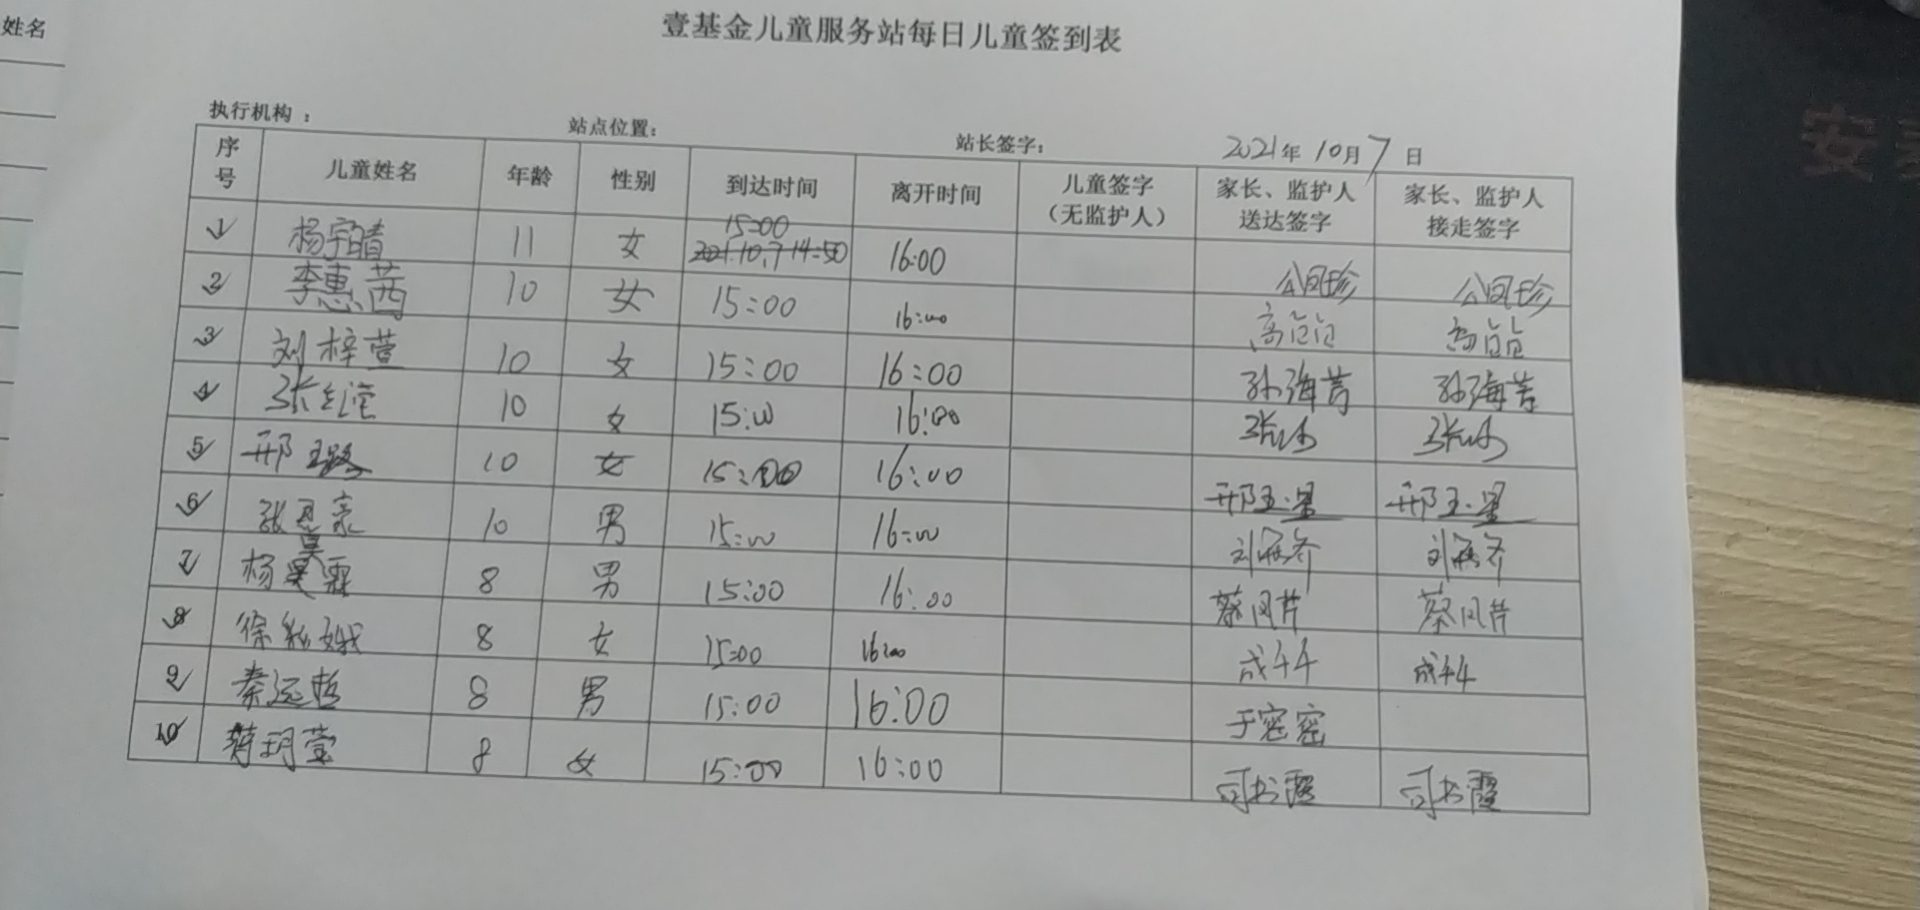 姓名
壹基金儿童服务站每日儿童签到表
执行机构： 站点位置： 站长签字： 2021年10月7日
序号 儿童姓名 年龄 性别 到达时间 离开时间 儿童签字（无监护人） 家长、监护人送达签字 家长、监护人接走签字
1 杨宇晴 11 女 15:00 2021.10.7 14:50 16:00 公凤珍 公凤珍
2 李惠茜 10 女 15:00 16:00
3 刘梓萱 10 女 15:00 16:00 孙海苦 孙海苦
4 10 女 15:00 16:00
5 邢 10 女 15:00 16:00 邢玉星 邢玉星
6 张 10 男 15:00 16:00
7 杨昊霖 8 男 15:00 16:00 蔡凤芹 蔡凤芹
8 徐 8 女 15:00 16:00
9 秦远哲 8 男 15:00 16:00 于密密
10 8 女 15:00 16:00 司书霞 司书霞
安